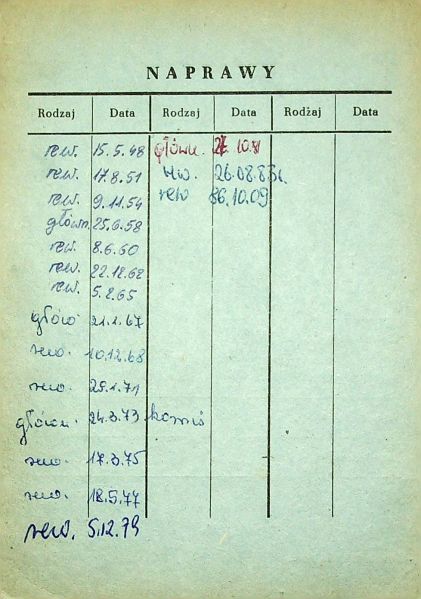 NAPRAWY
Rodzaj Data Rodzaj Data Rodzaj Data
rew. 15.5.48 główn. 10.8
rew. 17.8.51 rew. 26.08.83r.
rew. 9.11.54 rew 86.10.09
główn. 25.6.58
rew. 8.6.60
rew. 22.12.62
rew. 5.2.65
główn 21.1.67
rew. 10.12.68
rew. 25.1.71
główn. 24.3.73
rew. 17.3.75
rew. 18.5.77
rew. 5.12.79